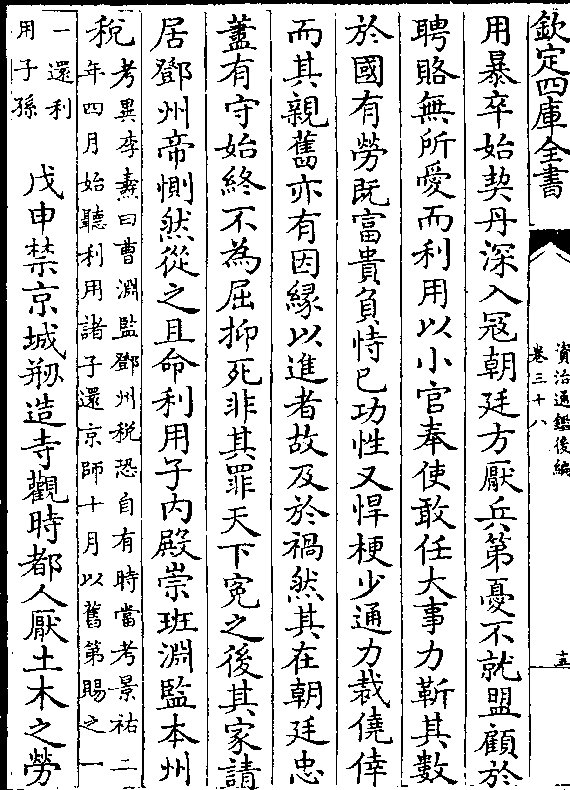 欽定四庫全書
資治通鑑後編
卷三十八
十五
用暴卒始契丹深入冦朝廷方厭兵第憂不就盟顧於
聘賂無所愛而利用以小官奉使敢任大事力靳其數
於國有勞既富貴負恃已功性又悍梗少通力裁僥倖
而其親舊亦有因緣以進者故及於禍然其在朝廷忠
藎有守始終不為屈抑死非其罪天下寃之後其家請
居鄧州帝惻然從之且命利用子内殿崇班淵監本州
稅考異李燾曰曹淵監鄧州稅恐自有時當考景祐二
年四月始聽利用諸子還京師十月以舊第賜之一
一還利
用子孫
戊申禁京城剏造寺觀時都人厭土木之勞